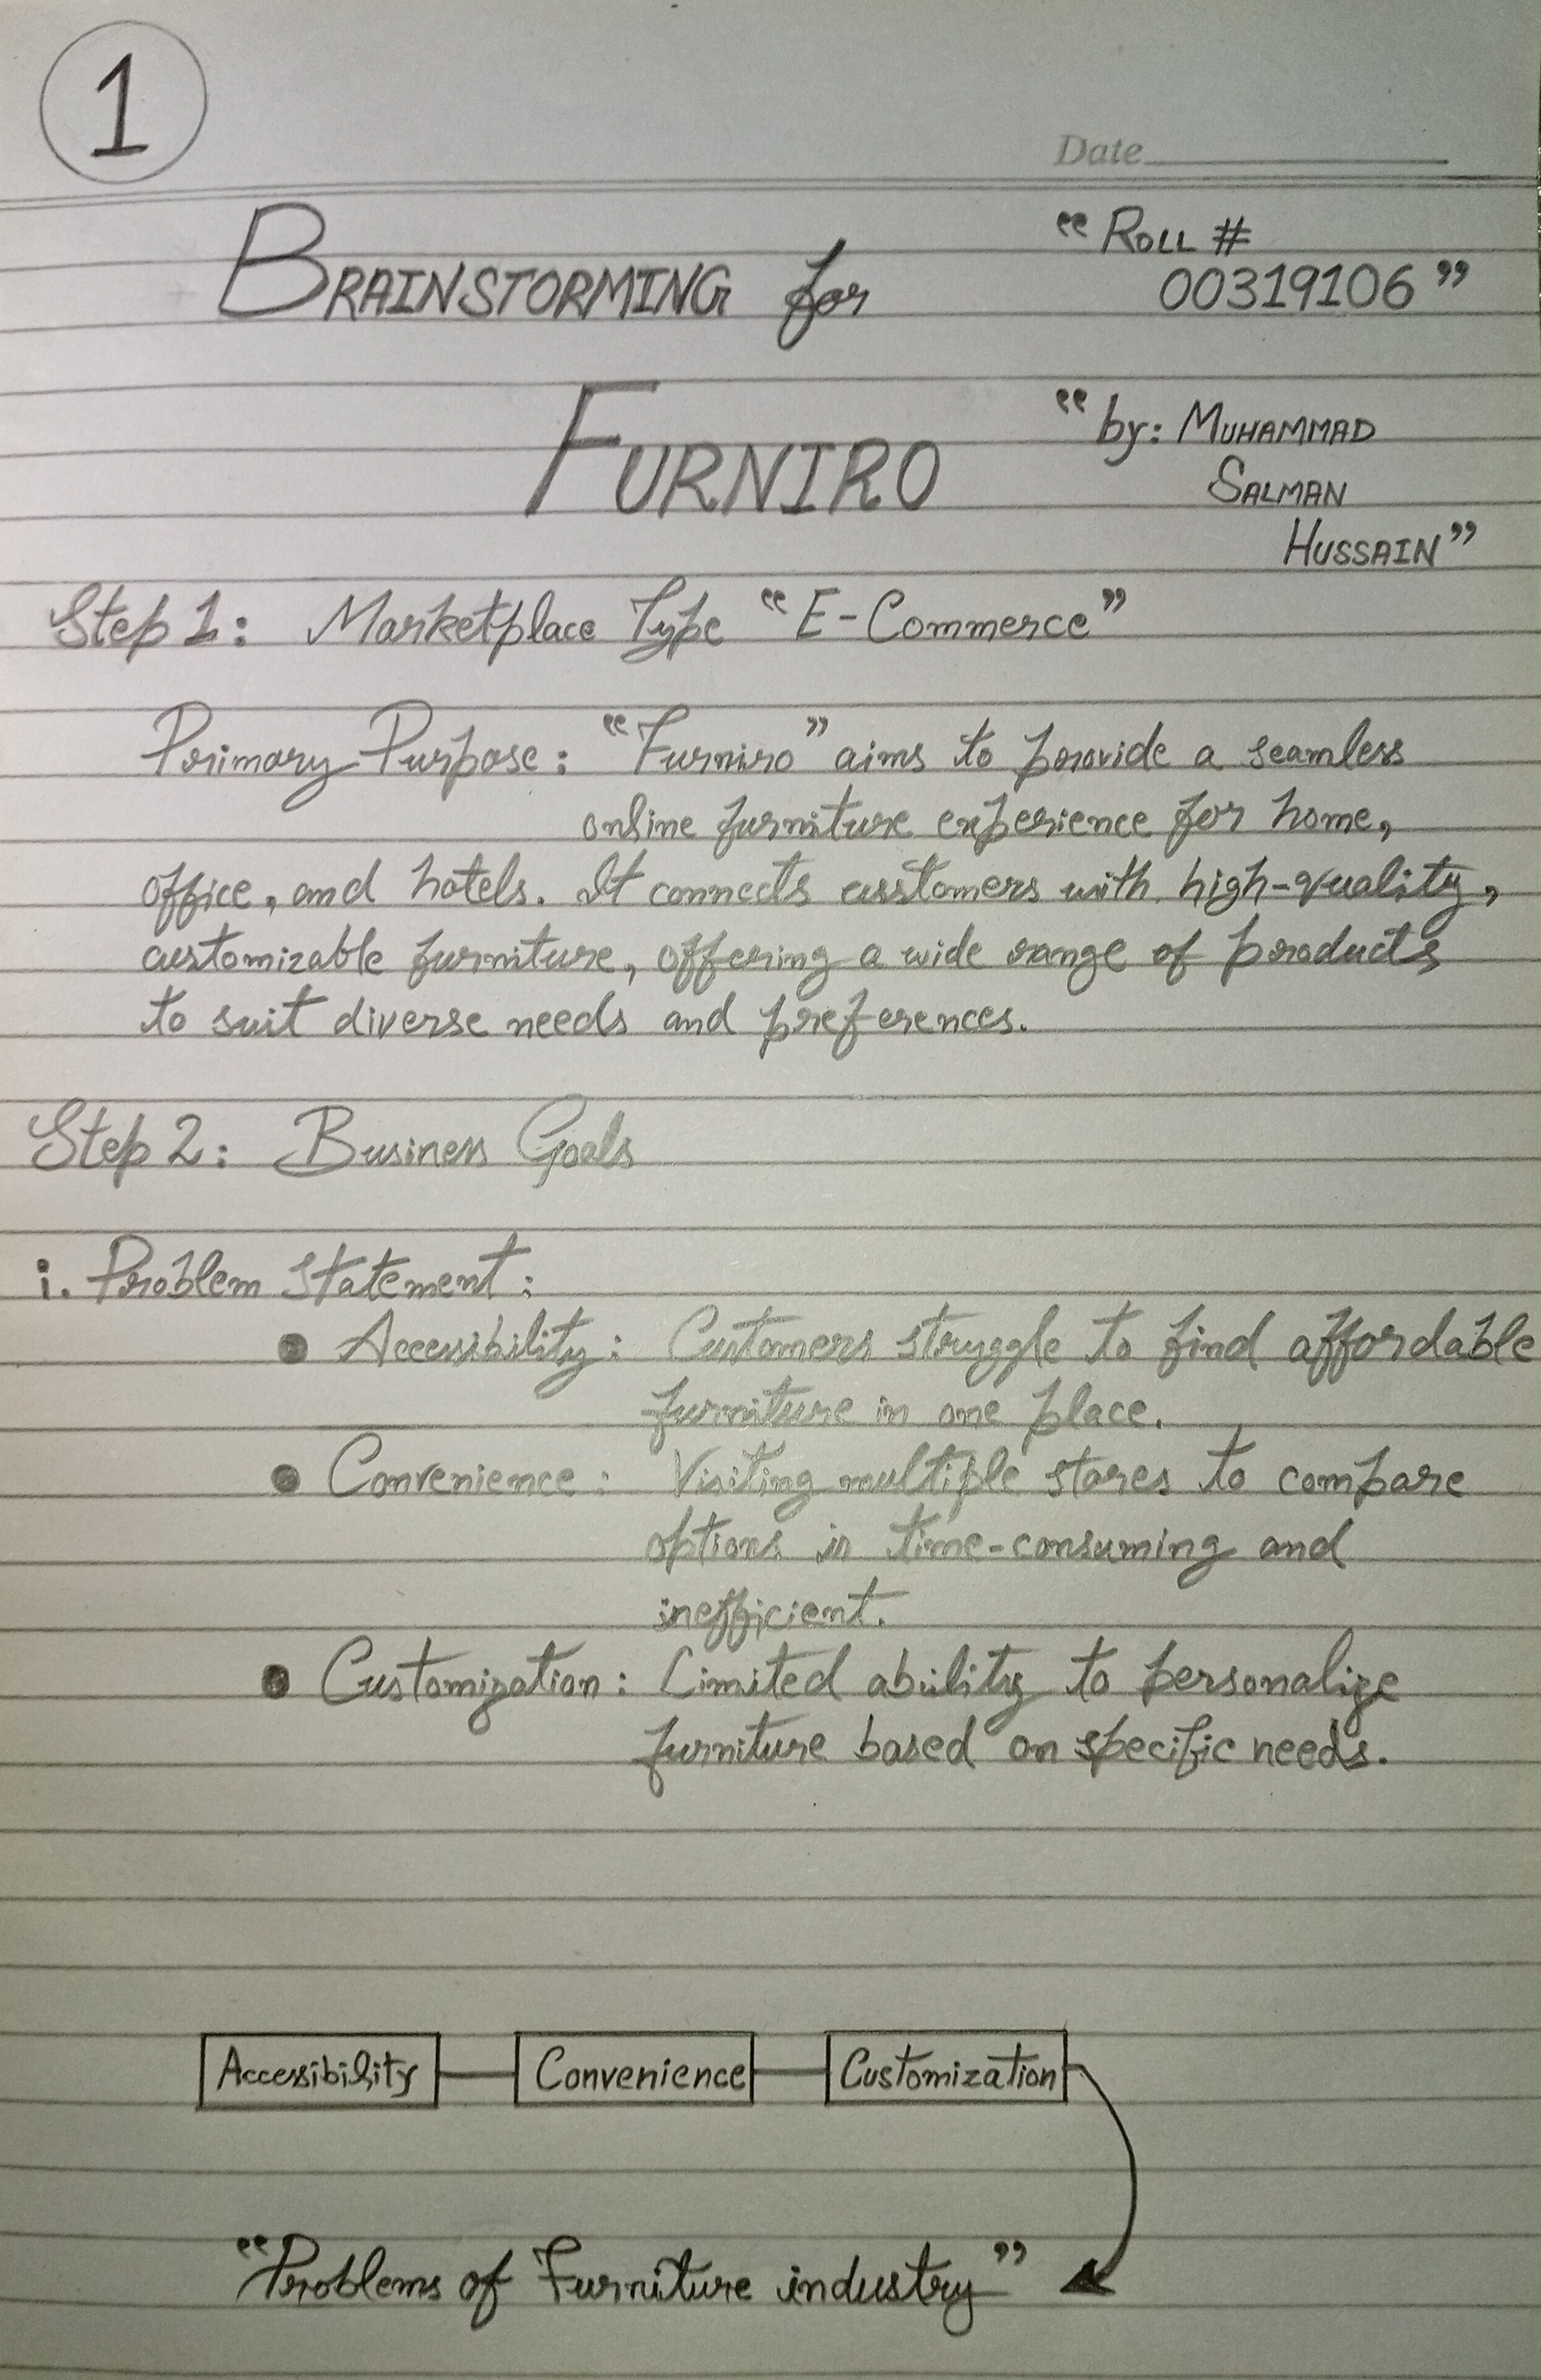 1
Date
BRAINSTORMING for
"ROLL #
00319106"
FURNIRO
"by: MUHAMMAD
SALMAN
HUSSAIN"
Step 1: Marketplace Type "E-Commerce"
Primary Purpose: "Furniro" aims to provide a seamless
online furniture experience for home,
office, and hotels. It connects customers with high-quality,
customizable furniture, offering a wide range of products
to suit diverse needs and preferences.
Step 2: Business Goals
i. Problem Statement:
• Accessibility: Customers struggle to find affordable
furniture in one place.
• Convenience: Visiting multiple stores to compare
options is time-consuming and
inefficient.
• Customization: Limited ability to personalize
furniture based on specific needs.
Accessibility Convenience Customization
"Problems of Furniture industry"